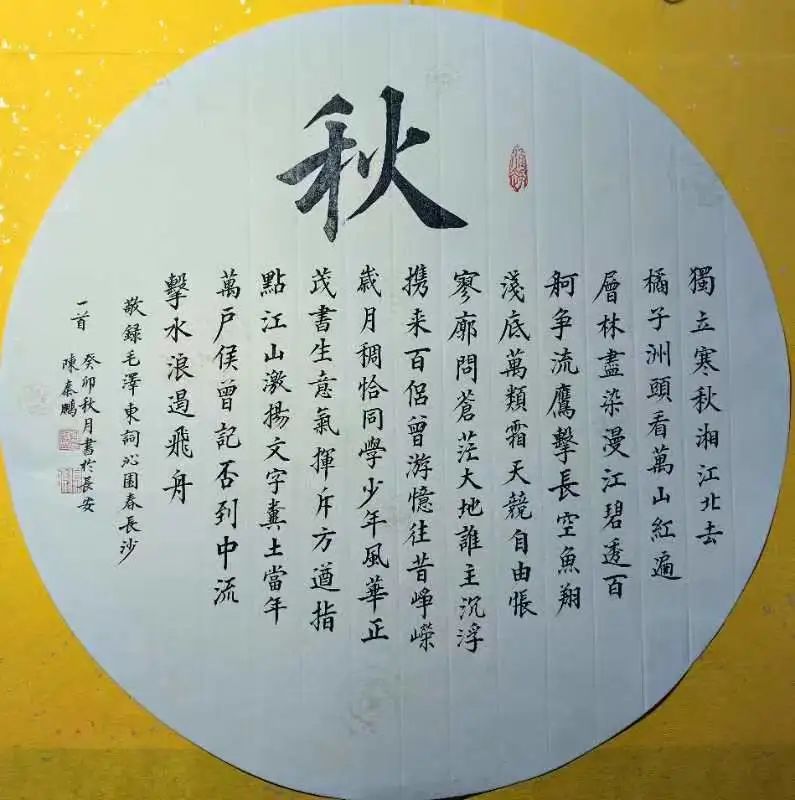 秋
獨立寒秋湘江北去
橘子洲頭看萬山紅遍
層林盡染漫江碧透百
舸争流鷹擊長空魚翔
淺底萬類霜天競自由悵
寥廓問蒼茫大地誰主沉浮
携来百侣曾游憶往昔崢嶸
歲月稠恰同學少年風華正
茂書生意氣揮斥方遒指
點江山激揚文字糞土當年
萬戶侯曾記否到中流
擊水浪遏飛舟
敬録毛澤東詞沁園春長沙
一首 癸卯秋月書於長安
陳泰鵬